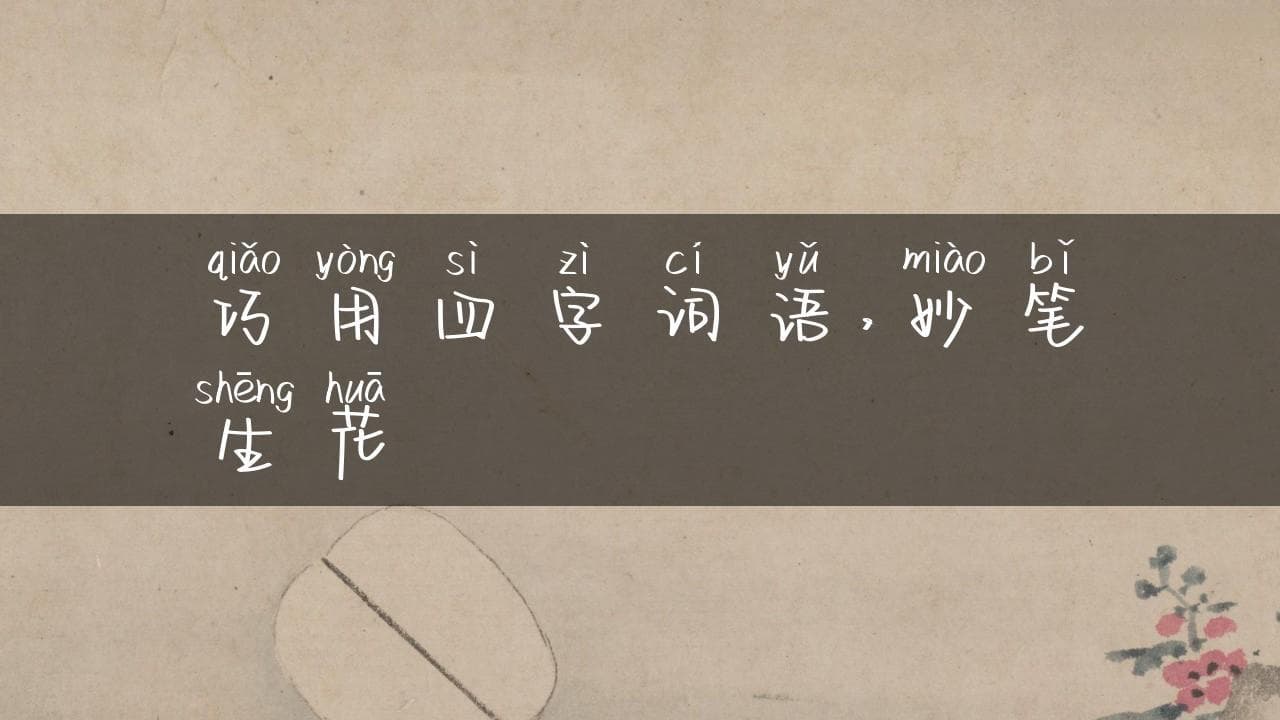 qiǎo yòng sì zì cí yǔ miào bǐ
巧用四字词语,妙笔
shēng huā
生花